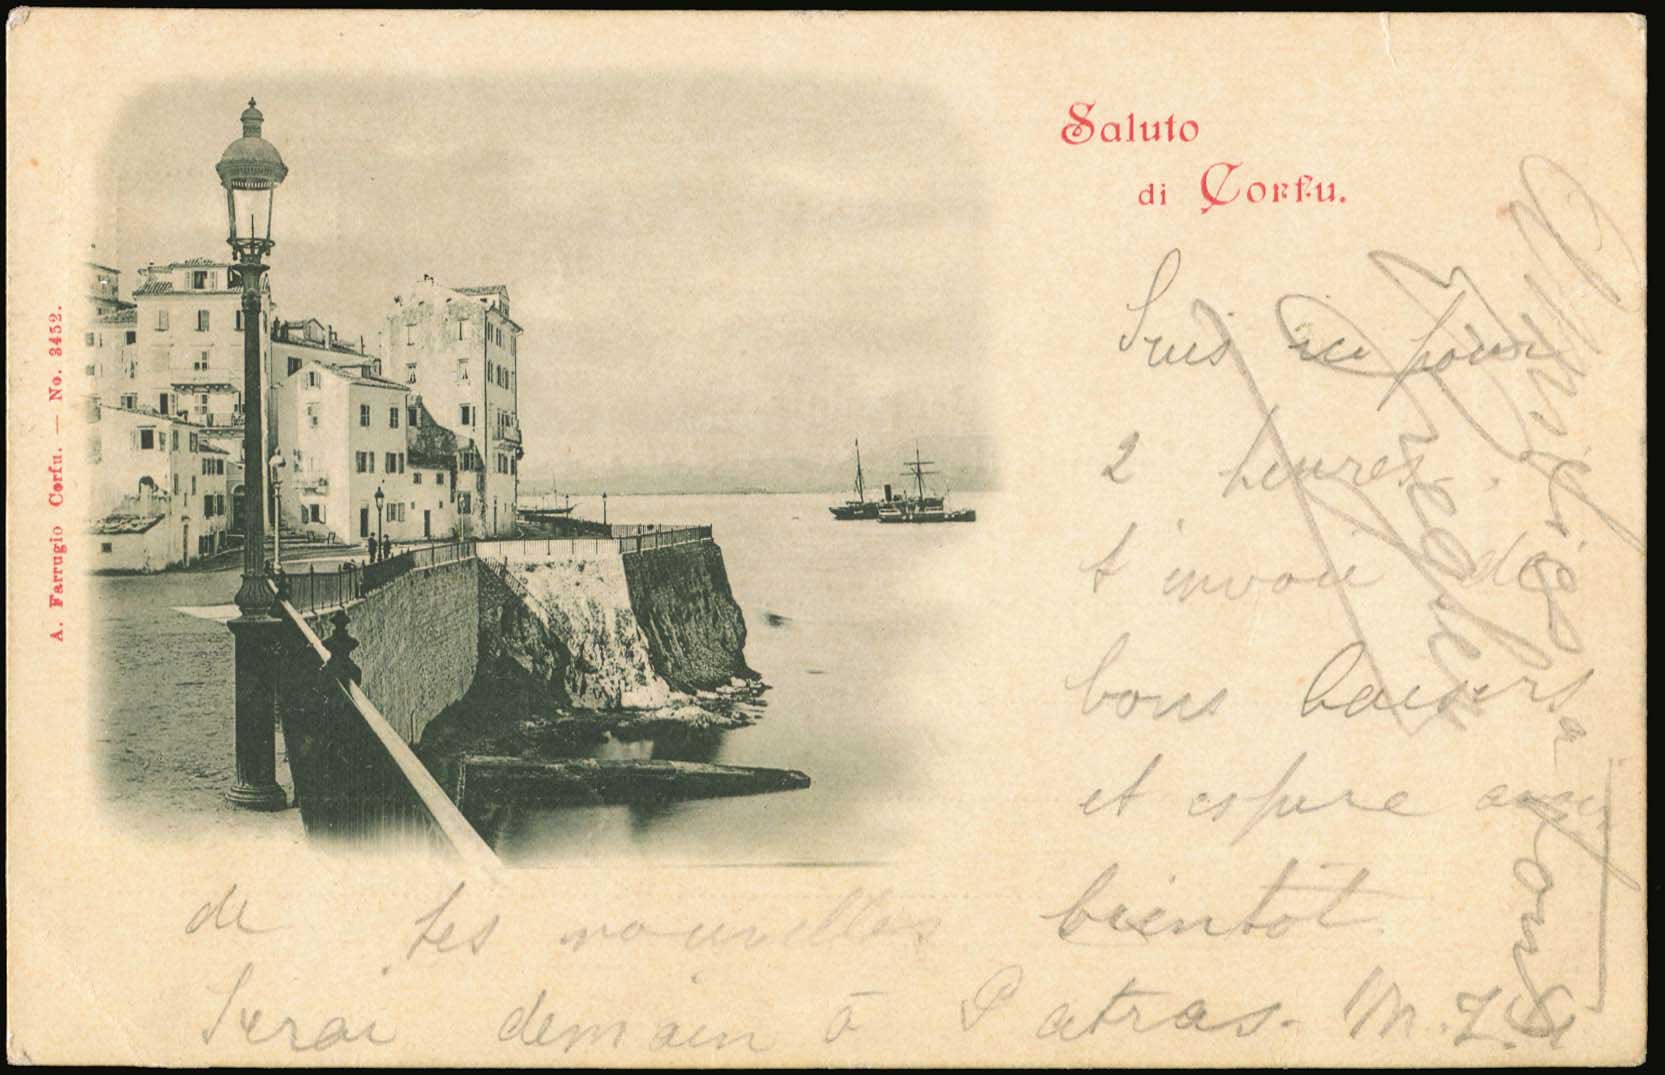 Saluto
di Corfu.
A. Farrugio Corfu. — No. 3452.
Suis ici pour
2 heures.
t'envoie de
bons baisers
et espere avoir
bientôt
de tes nouvelles
Serai demain à Patras.
Amitiés à